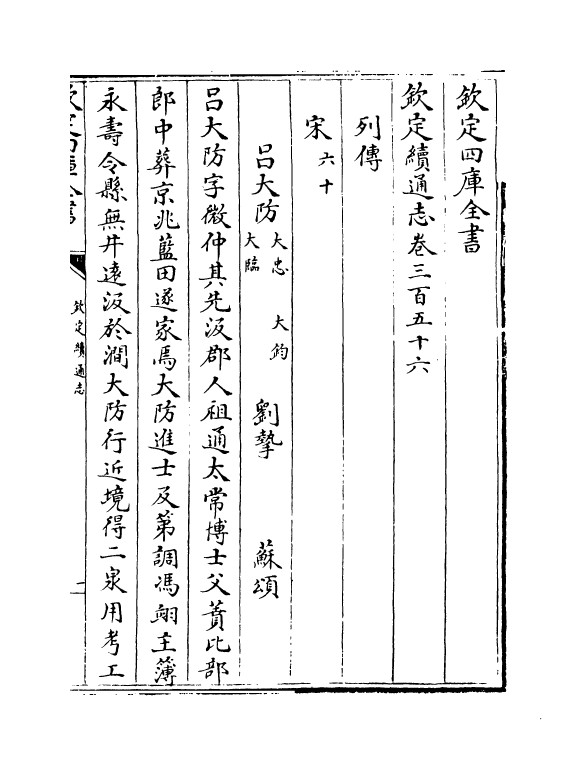 欽定四庫全書
欽定續通志卷三百五十六
列傳
宋六十
呂大防大忠 大鈞 大臨 劉摯 蘇頌
呂大防字微仲其先汲郡人祖通太常博士父蕡比部
郎中葬京兆藍田遂家焉大防進士及第調馮翊主簿
永壽令縣無井遠汲於澗大防行近境得二泉用考工
欽定續通志